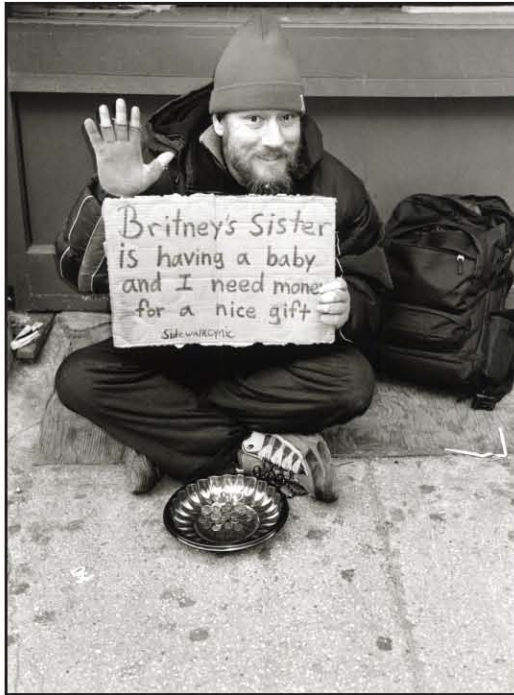 Britney's Sister
is having a baby
and I need mone
for a nice gift
Sidewalkcynic